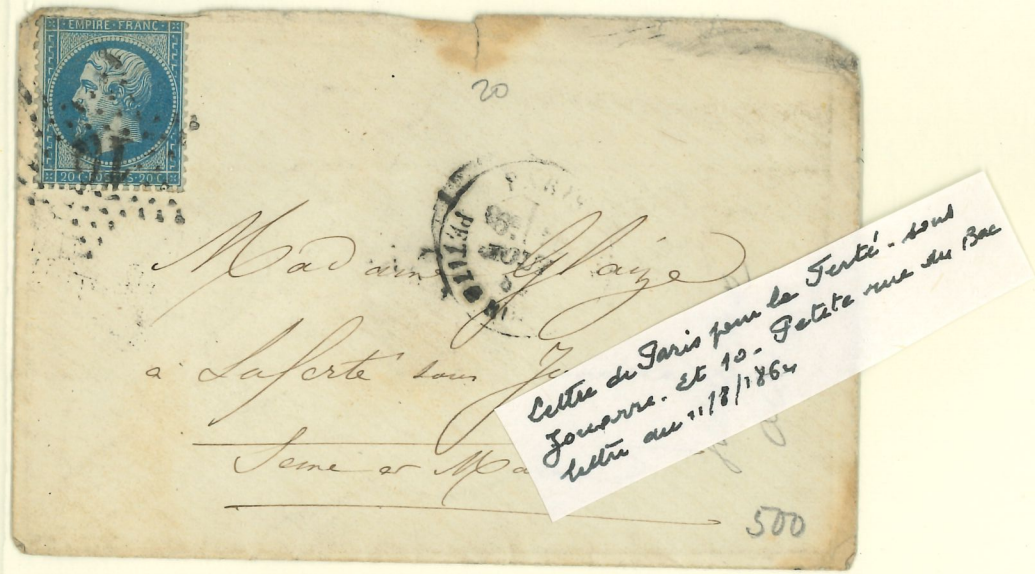 EMPIRE · FRANC ·
20 C · POSTES · 20 C
20
PARIS
Madame Glaize
à Laferte sous
Seine et Ma
Lettre de Paris pour la Ferté-sous
Jouarre. Et 10. Petite rue du Bac
lettre du 11/8/1864
500